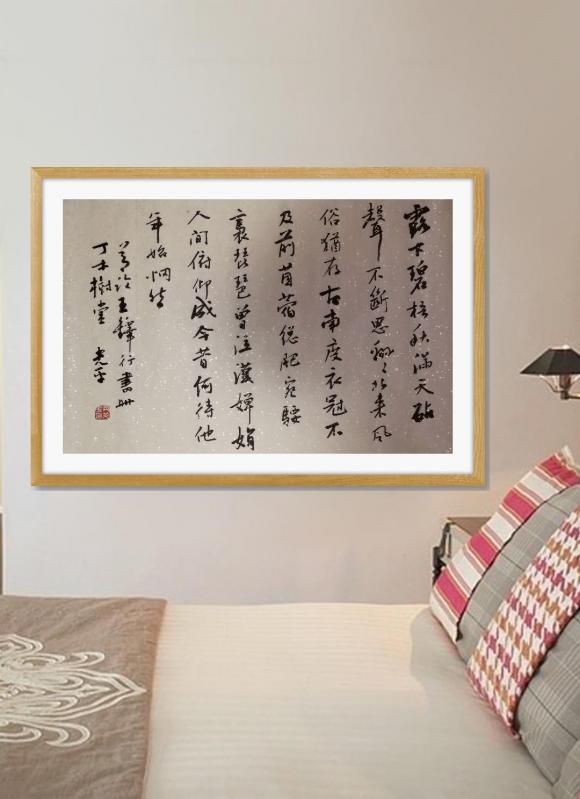 露下碧梧秋滿天砧
聲不斷思綿々北來風
俗猶存古南度衣冠不
及前苜蓿總肥宛騕
裊琵琶曾泣漢嬋娟
人間俯仰成今昔何待他
年始惘然
臨王鐸行書冊
丁木樹堂